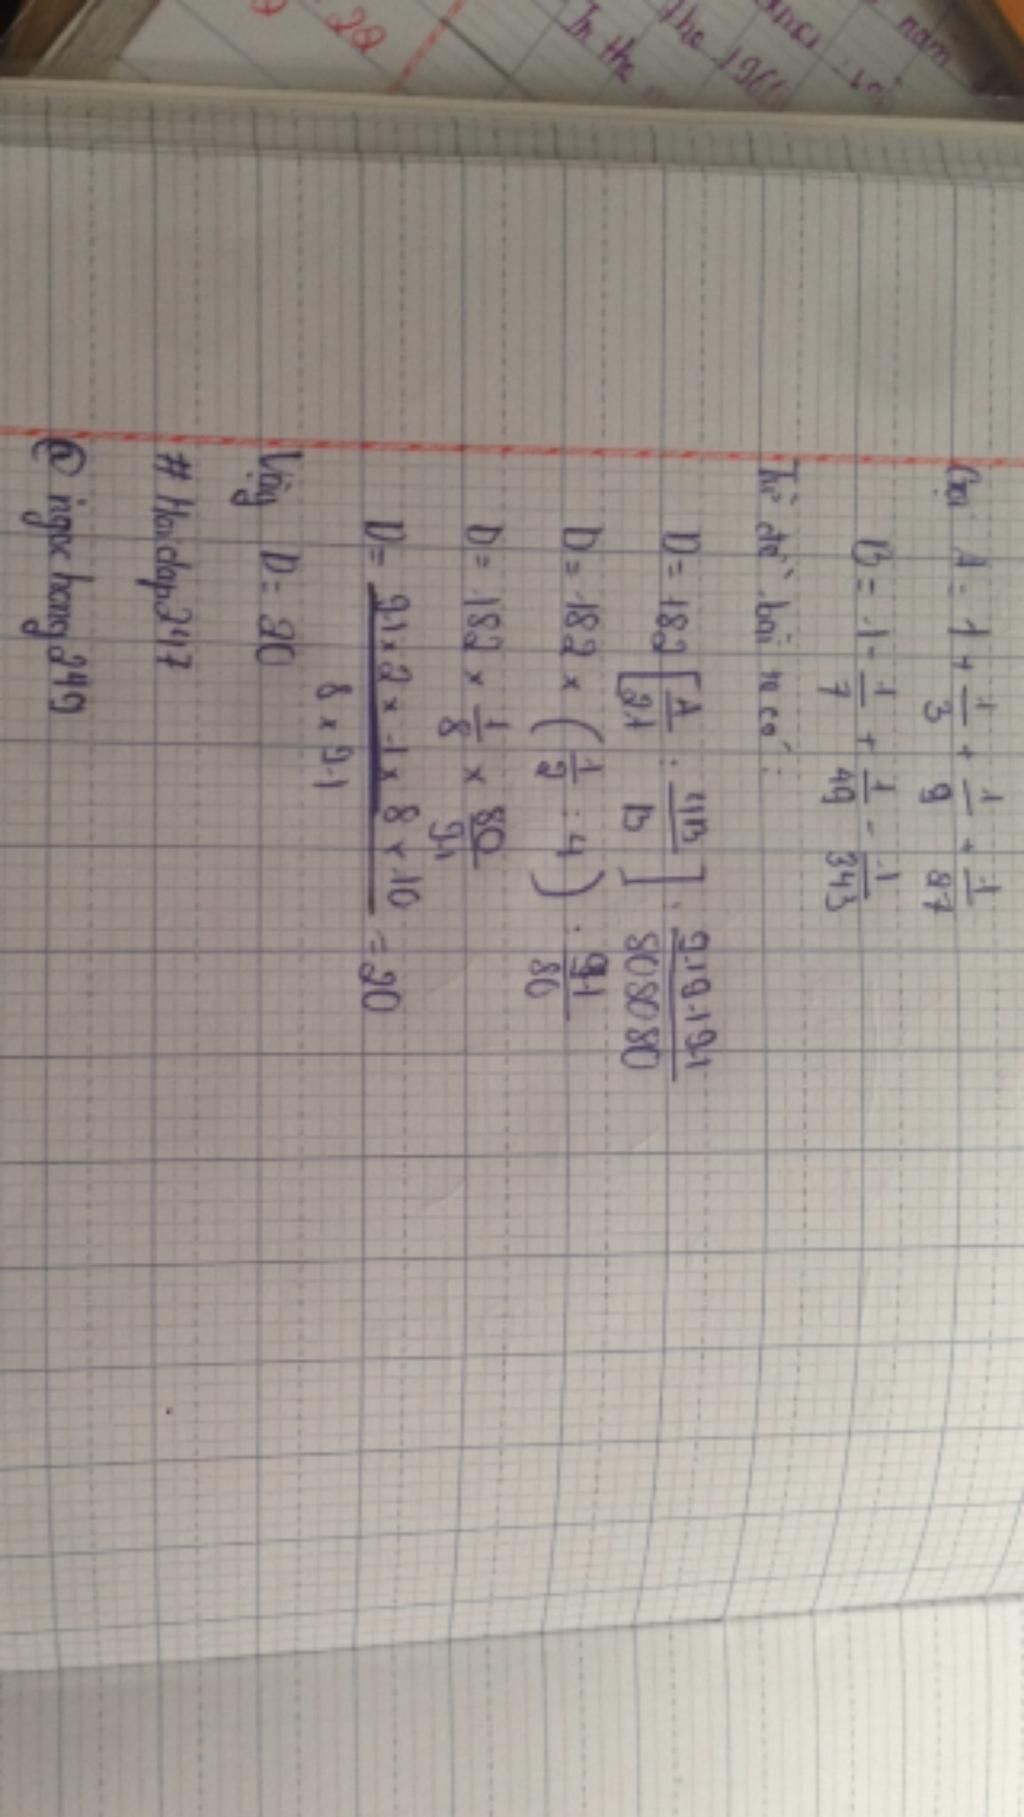 Gọi A = 1 + 1/3 + 1/9 + 1/27
B = 1 - 1/7 + 1/49 - 1/343
Từ đề bài ta có :
D = 182 [ A/2A : 4B/B ] : 919191/808080
D = 182 × ( 1/2 : 4 ) : 91/80
D = 182 × 1/8 × 80/91
D = 91 × 2 × 1 × 8 × 10 / 8 × 91 = 20
Vậy D = 20
# Hoidap247
@ ngoc hang 249
nam
the 196
In the
22